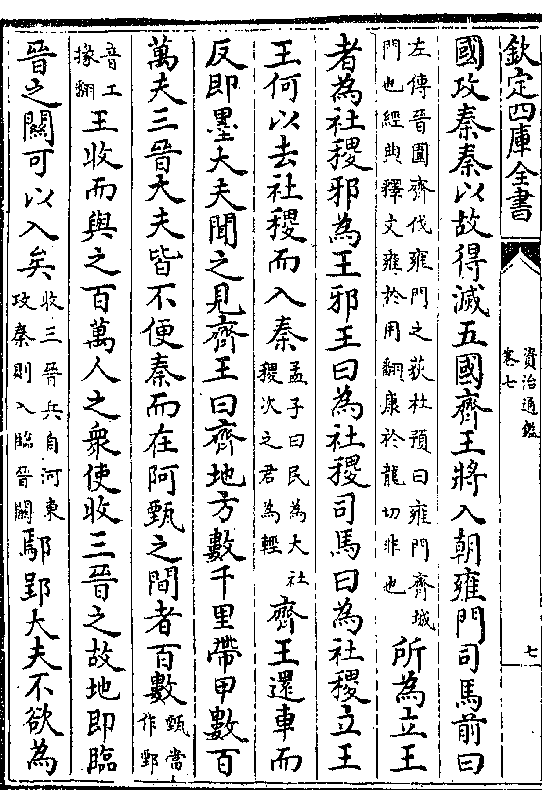 欽定四庫全書
資治通鑑
卷七
七
國攻秦秦以故得滅五國齊王將入朝雍門司馬前曰
左傳晉圍齊伐雍門之荻杜預曰雍門齊城
門也經典釋文雍於用翻康於龍切非也
所為立王
者為社稷邪為王邪王曰為社稷司馬曰為社稷立王
王何以去社稷而入秦
孟子曰民為大社
稷次之君為輕
齊王還車而
反即墨大夫聞之見齊王曰齊地方數千里帶甲數百
萬夫三晉大夫皆不便秦而在阿甄之間者百數
甄當
作鄄
音工
掾翻
王收而與之百萬人之衆使收三晉之故地即臨
晉之關可以入矣
收三晉兵自河東
攻秦則入臨晉關
鄢郢大夫不欲為